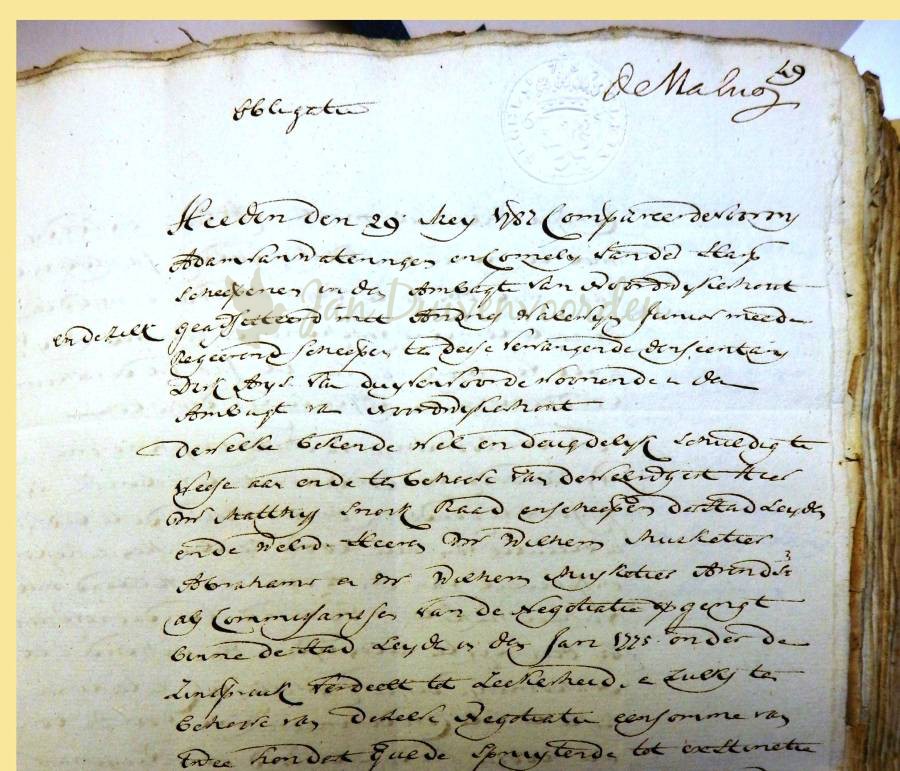 49
de Mabus
Obligatie
Heeden den 29 Mey 1782 Compareerde voor my
Adam van Wateringen en Cornelis van der Klasp
Scheepenen in den Ambagte van Noordwykerhout
en de Zilk geassisteerd met Andries Walewyn Junior meede
Regeerend Scheepen ten deese vervangende den secretary
Dirk Arysz van Duyvenvoorde woonende in den
Ambagt van Noordwykerhout
dewelke bekende wel en deugdelyk schuldig te
Weese aan en de ten behoeve van den Heer
Mr Matthys Snoek Raad en scheepen der stad Leyden
en de Heeren Mr Wilhem Musketier
Abrahamsz en Mr Wilhem Musketier Arendsz
als Commissarissen van de Negotiatie opgeregt
binne de stad Leyde in den Jare 1775 onder de
Zinspreuk Verdeelt tot Zeekerheid, e zulks ten
behoeve van deselve Negotiatie een somme van
twee hondert guldens spruytende tot extinctie
Jan Duivenvoorden